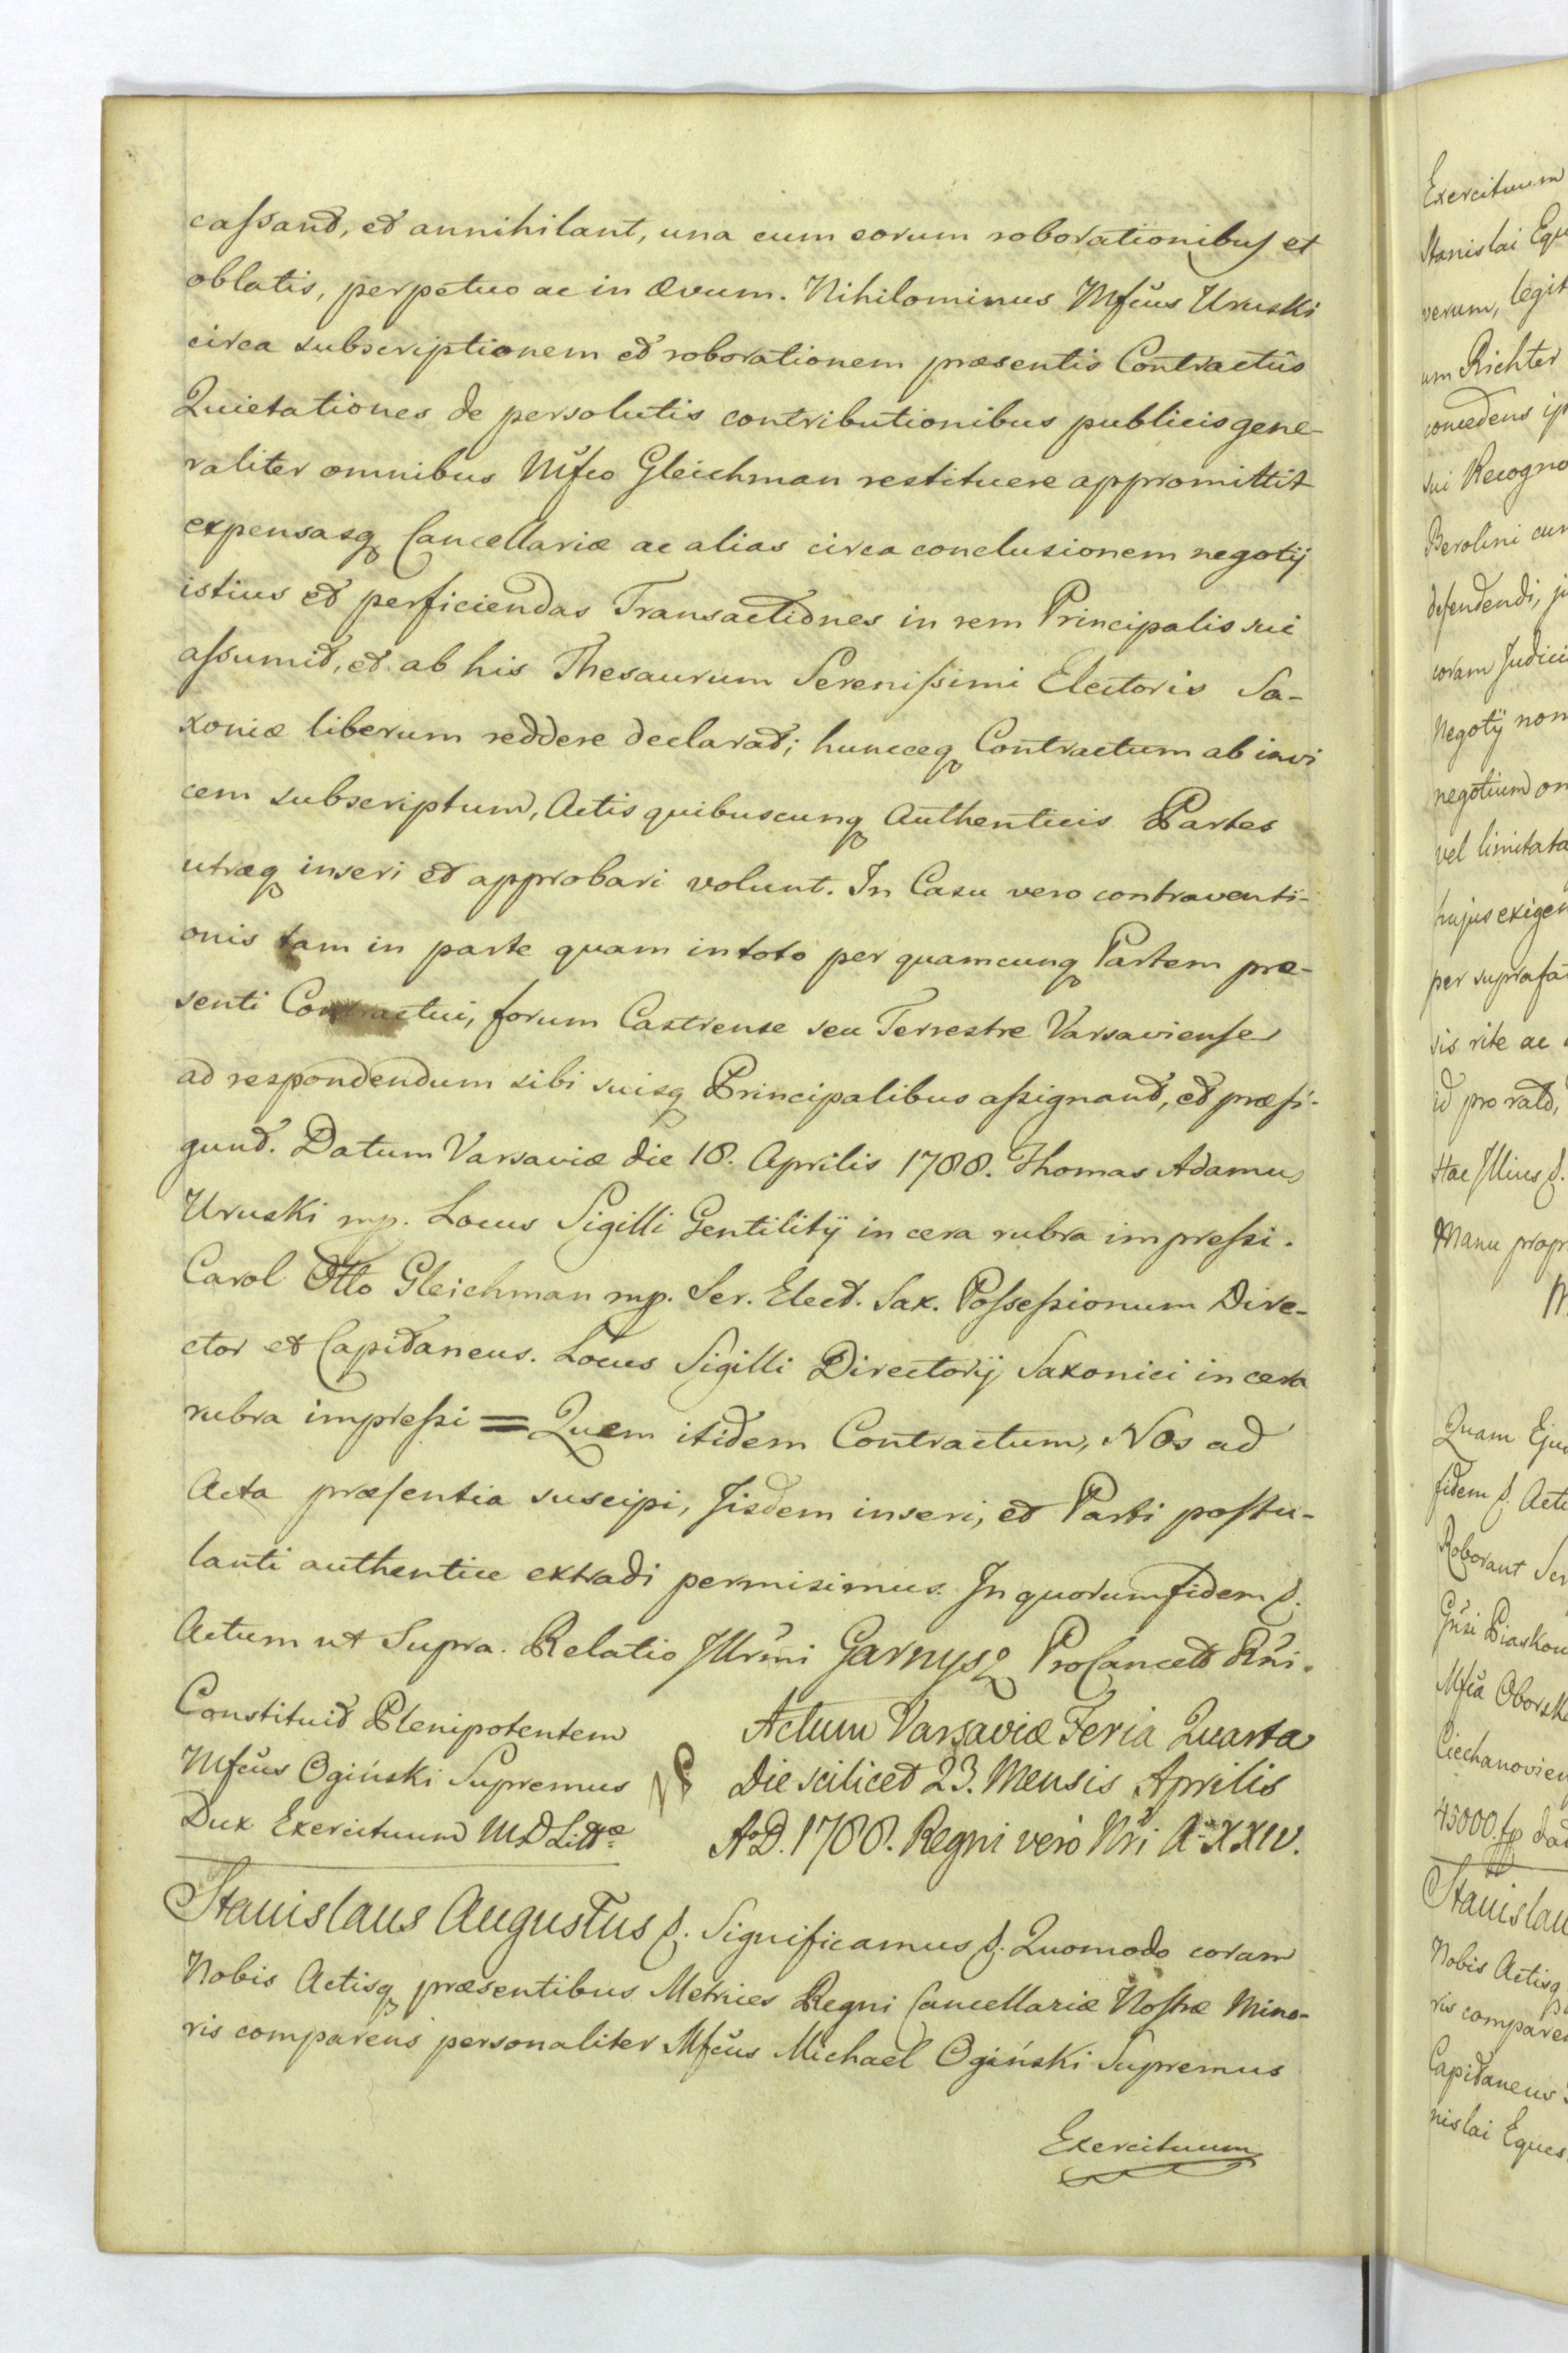 cassant, et annihilant, una cum eorum roborationibus et
oblatis, perpetuo ac in ævum. Nihilominus Mfcus Uruski
circa subscriptionem et roborationem præsentis Contractûs
Quietationes de persolutis contributionibus publicis gene-
raliter omnibus Mfco Gleichman restituere appromittit
expensasq Cancellariæ ac alias circa conclusionem negotij
istius et perficiendas Transactiones in rem Principalis sui
assumit, et ab his Thesaurum Serenissimi Electoris Sa-
xoniæ liberum reddere declarat; hunceq Contractum ab invi
cem subscriptum, Actis quibuscunq Authenticis Partes
utræq inseri et approbari volunt. In Casu vero contraventi-
onis tam in parte quam in toto per quamcunq Partem præ-
senti Contractui, forum Castrense seu Terrestre Varsaviense
ad respondendum sibi suisq Principalibus assignant, et præfi-
gunt. Datum Varsaviæ die 18. Aprilis 1788. Thomas Adamus
Uruski mp. Locus Sigilli Gentilitij in cera rubra impressi.
Carol Otto Gleichman mp. Ser. Elect. Sax. Possessionum Dire-
ctor et Capitaneus. Locus Sigilli Directorij Saxonici in cera
rubra impressi = Quem itidem Contractum, Nos ad
Acta præsentia suscipi, Jisdem inseri, et Parti postu-
lanti authentice extradi permisimus. In quorum fidem &.
Actum ut Supra. Relatio Jllrmi Garnysz ProCancell Rni.
Constituit Plenipotentem
Mfcus Ogiński Supremus
Dux Exercituum M D Littæ
Actum Varsaviæ Feria Quarta
Die scilicet 23. Mensis Aprilis
A.D. 1788. Regni vero Nri A. XXIV.
Stanislaus Augustus &. Significamus &. Quomodo coram
Nobis Actisq præsentibus Metrices Regni Cancellariæ Nostræ Mino-
ris comparens personaliter Mfcus Michael Ogiński Supremus
Exercituum
Exercituum
Stanislai Equ
verum, legit
um Richter
concedens ip
sui Recogno
Berolini cum
defendendi, ju
coram Judici
Negotij non
negotium om
vel limitata
hujus exigen
per suprafat
sis rite ac
id pro rato,
Hac Jllius &.
Manu propr
Quam Eju
fidem &. Actu
Roborant Ser
Gnsi Piaskow
Mfca Oborsk
Ciechanovien
45000. fp dat
Stanislau
Nobis Actisq
ris comparen
Capitaneus
nislai Eques